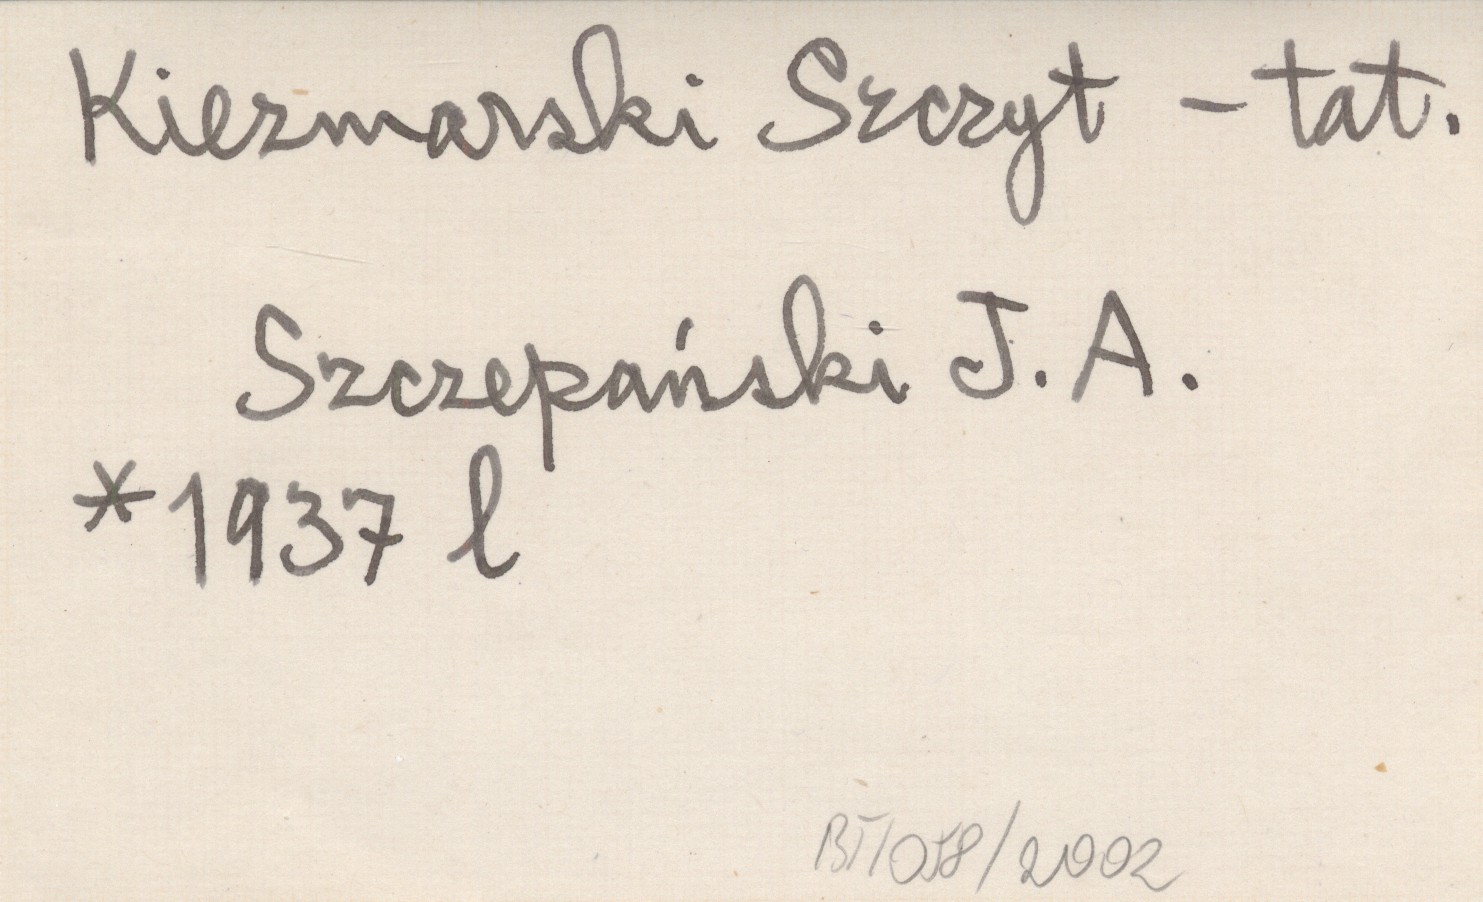 Kiezmarski Szczyt - tat.
Szczepański J. A.
*1937 l
BT/058/2002